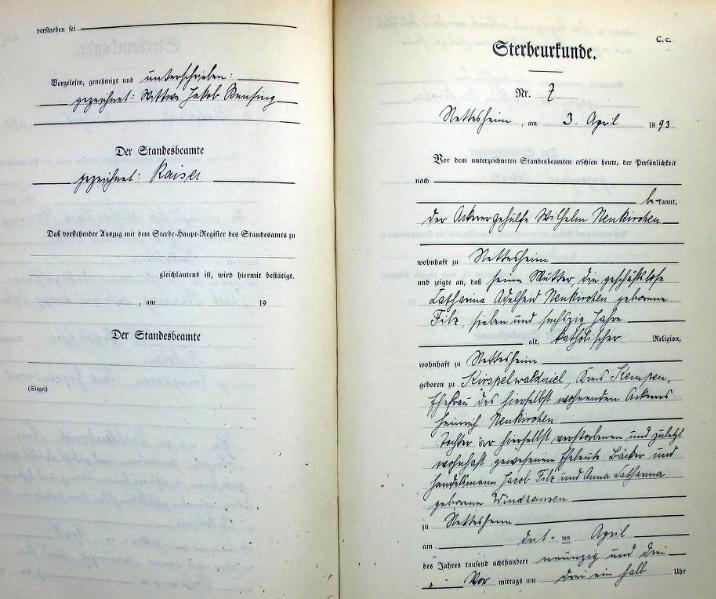 verstorben sei
Vorgelesen, genehmigt und unterschrieben:
gezeichnet: Wittwe Jakob Bensing
Der Standesbeamte
gezeichnet: Kaiser
Daß vorstehender Auszug mit dem Sterbe-Haupt-Register des Standesamts zu
gleichlautend ist, wird hiermit bestätigt.
, am 19
Der Standesbeamte
(Siegel)
C. c.
Sterbeurkunde.
Nr. 7
Nettesheim, am 3. April 1893.
Vor dem unterzeichneten Standesbeamten erschien heute, der Persönlichkeit
nach
bekannt,
der Ackergehülfe Wilhelm Neukirchen
wohnhaft zu Nettesheim
und zeigte an, daß seine Mutter, die geschäftslose
Catharina Adelheid Neukirchen geborene
Filz, sieben und sechszig Jahre
alt, katholischer Religion,
wohnhaft zu Nettesheim
geboren zu Kirspelwaldniel, Kreis Kempen,
Ehefrau des hierselbst wohnenden Ackerers
Heinrich Neukirchen
Tochter der hierselbst verstorbenen und zuletzt
wohnhaft gewesenen Eheleute Bäcker und
Handelsmann Jacob Filz und Anna Catharina
geborene Windhausen
zu Nettesheim
am dritten April
des Jahres tausend achthundert neunzig und drei
Vor mittags um drei ein halb Uhr